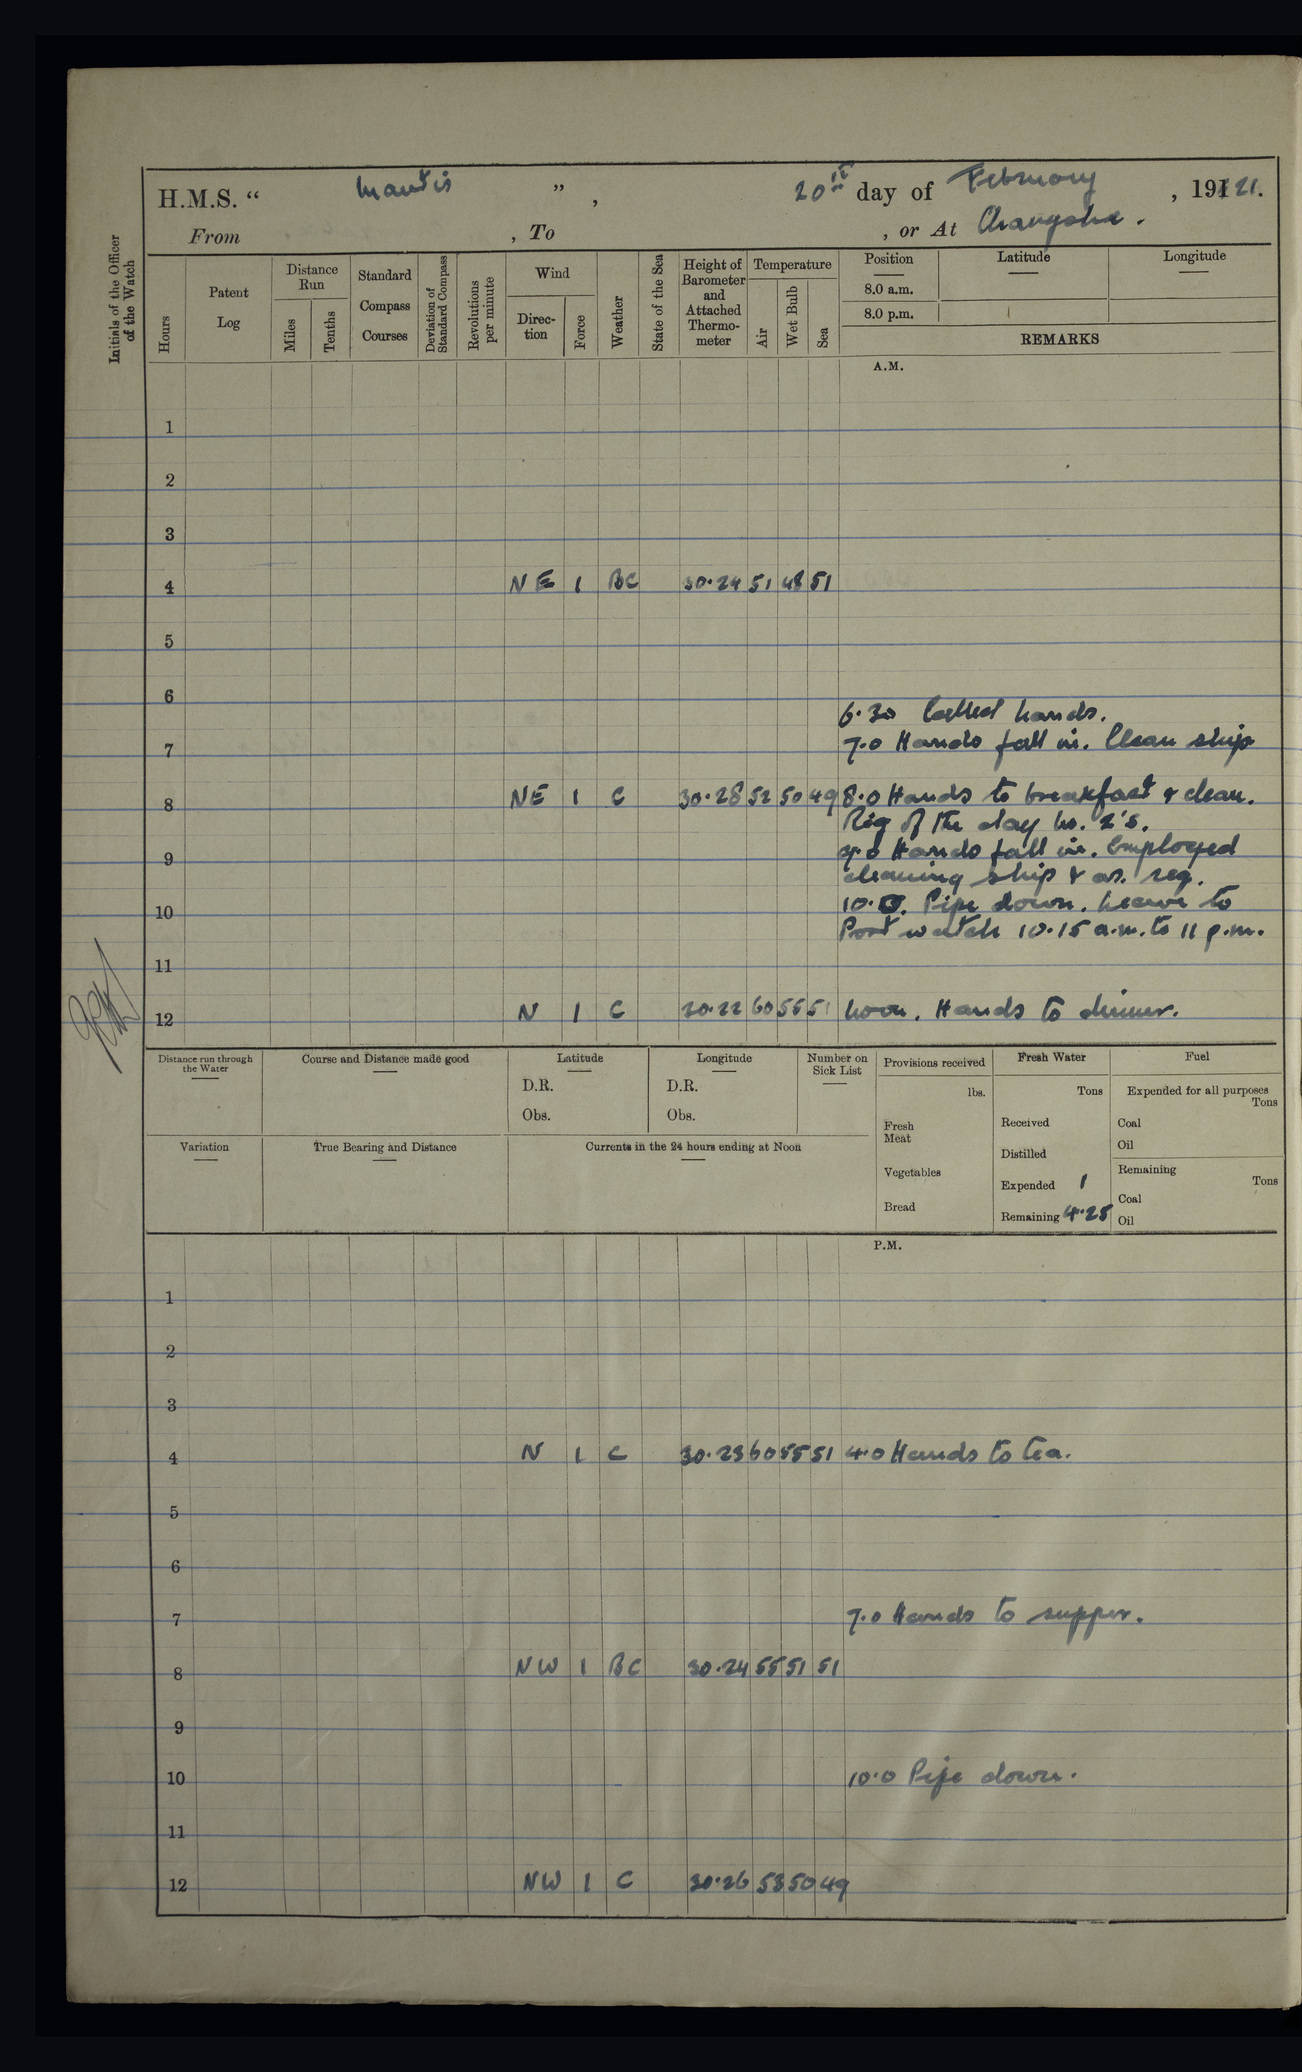 H.M.S. “ Mantis ” , 20th day of February , 1921.
From , To , or At Changsha .
Initials of the Officer of the Watch
Hours
Patent Log
Distance Run
Miles
Tenths
Standard Compass Courses
Deviation of Standard Compass
Revolutions per minute
Wind
Direc-tion
Force
Weather
State of the Sea
Height of Barometer and Attached Thermo-meter
Temperature
Air
Wet Bulb
Sea
Position
8.0 a.m.
8.0 p.m.
Latitude
Longitude
REMARKS
A.M.
1
2
3
4 NE 1 BC 30.24 51 48 51
5
6
6.30 Called hands.
7 7.0 Hands fall in. Clean ship
8 NE 1 C 30.28 52 50 49 8.0 Hands to breakfast & clean.
Rig of the day No. 2's.
9 9.0 Hands fall in. Employed
cleaning ship & as. req.
10 10.0. Pipe down. Leave to
Port watch 10.15 a.m. to 11 p.m.
11
12 N 1 C 30.22 60 55 51 Noon. Hands to dinner.
Distance run through the Water
Course and Distance made good
Latitude
D.R.
Obs.
Longitude
D.R.
Obs.
Number on Sick List
Variation
True Bearing and Distance
Currents in the 24 hours ending at Noon
Provisions received
lbs.
Fresh Meat
Vegetables
Bread
Fresh Water
Tons
Received
Distilled
Expended 1
Remaining 4.25
Fuel
Expended for all purposes
Tons
Coal
Oil
Remaining
Tons
Coal
Oil
P.M.
1
2
3
4 N 1 C 30.23 60 55 51 4.0 Hands to tea.
5
6
7 7.0 Hands to supper.
8 NW 1 BC 30.24 55 51 51
9
10 10.0 Pipe down.
11
12 NW 1 C 30.26 53 50 49